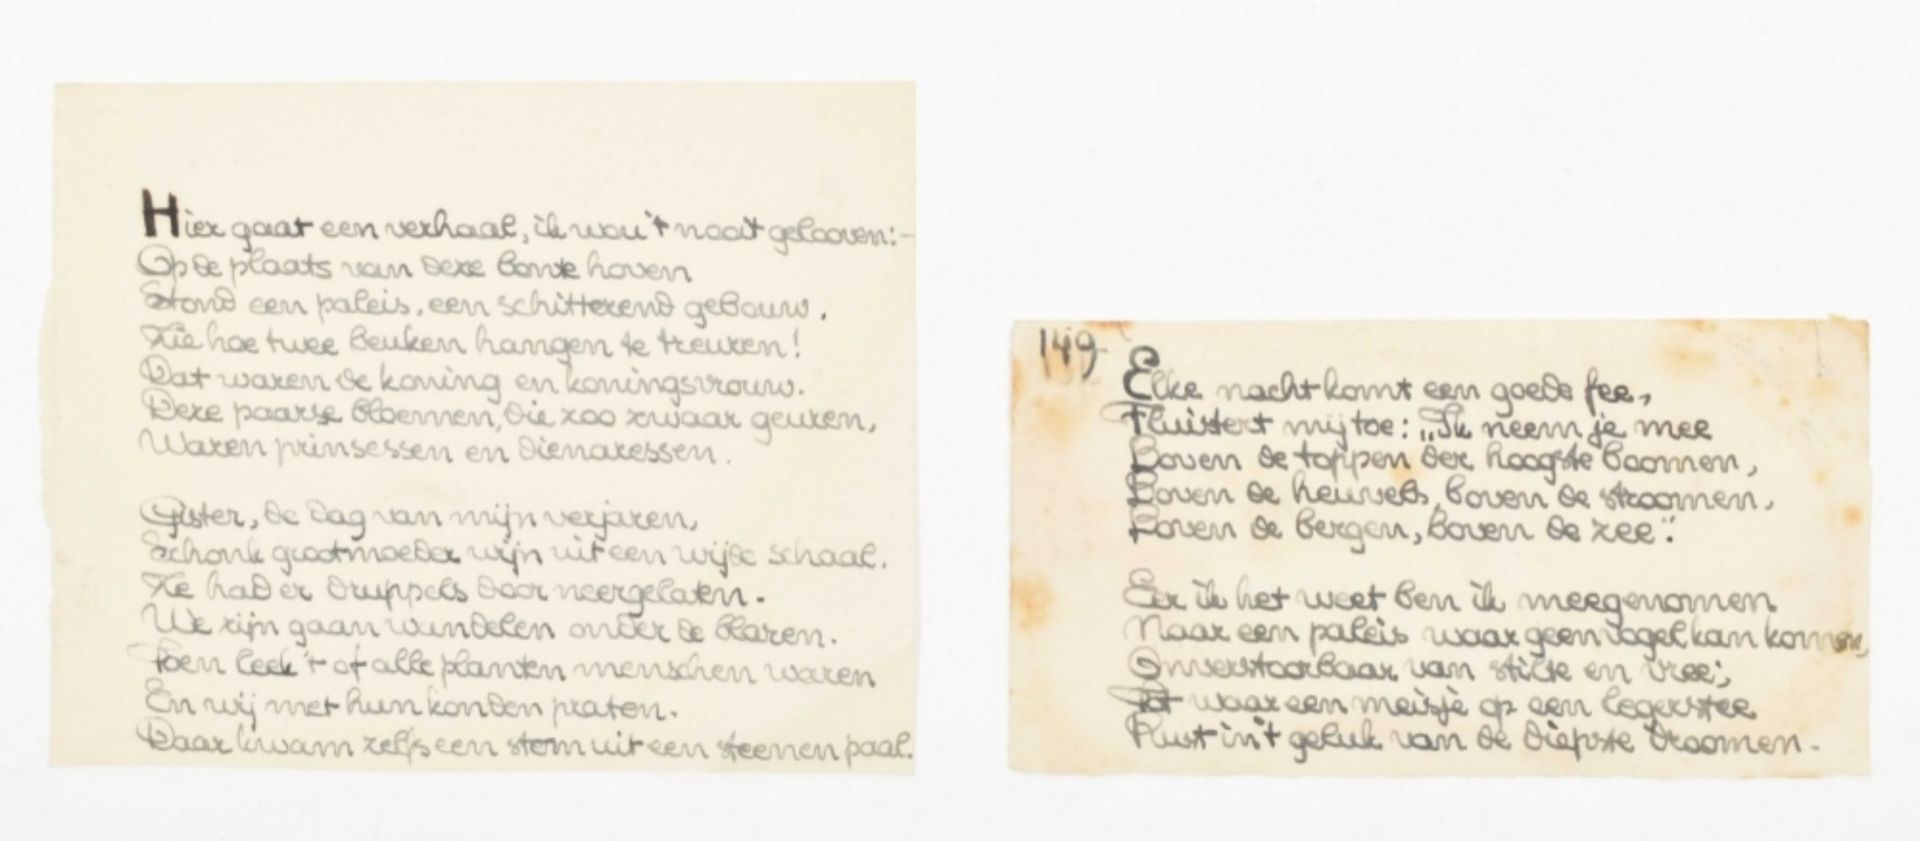 Hier gaat een verhaal, ik wou 't nooit gelooven:-
Op de plaats van deze bonte hoven
Stond een paleis, een schitterend gebouw.
Zie hoe twee beuken hangen te treuren!
Dat waren de koning en koningsvrouw.
Deze paarse bloemen, die zoo zwaar geuren,
Waren prinsessen en dienaressen.
Gister, de dag van mijn verjaren,
Schonk grootmoeder wijn uit een wijde schaal.
Ze had er druppels door neergelaten.
We zijn gaan wandelen onder de blaren.
Toen leek 't of alle planten menschen waren
En wij met hun konden praten.
Daar kwam zelfs een stem uit een steenen paal.
149
Elke nacht komt een goede fee,
Fluistert mij toe: „Ik neem je mee
Boven de toppen der hoogste boomen,
Boven de heuvels, boven de stroomen,
Boven de bergen, boven de zee".
Eer ik het weet ben ik meegenomen
Naar een paleis waar geen vogel kan komen,
Onverstoorbaar van stilte en vree;
Tot waar een meisje op een legerstee
Rust in 't geluk van de diepste droomen.